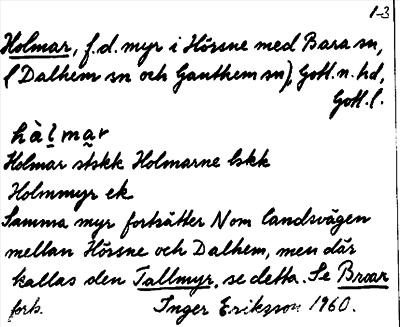 1-3
Holmar, f.d. myr i Hörsne med Bara sn,
(Dalhem sn och Ganthem sn), Gotl. n. hd,
Gotl. l.
hàlmar
Holmar stskk Holmarne lskk
Holmmyr ek
Samma myr fortsätter N om landsvägen
mellan Hörsne och Dalhem, men där
kallas den Tallmyr, se detta. Se Broar
forts. Inger Eriksson 1960.